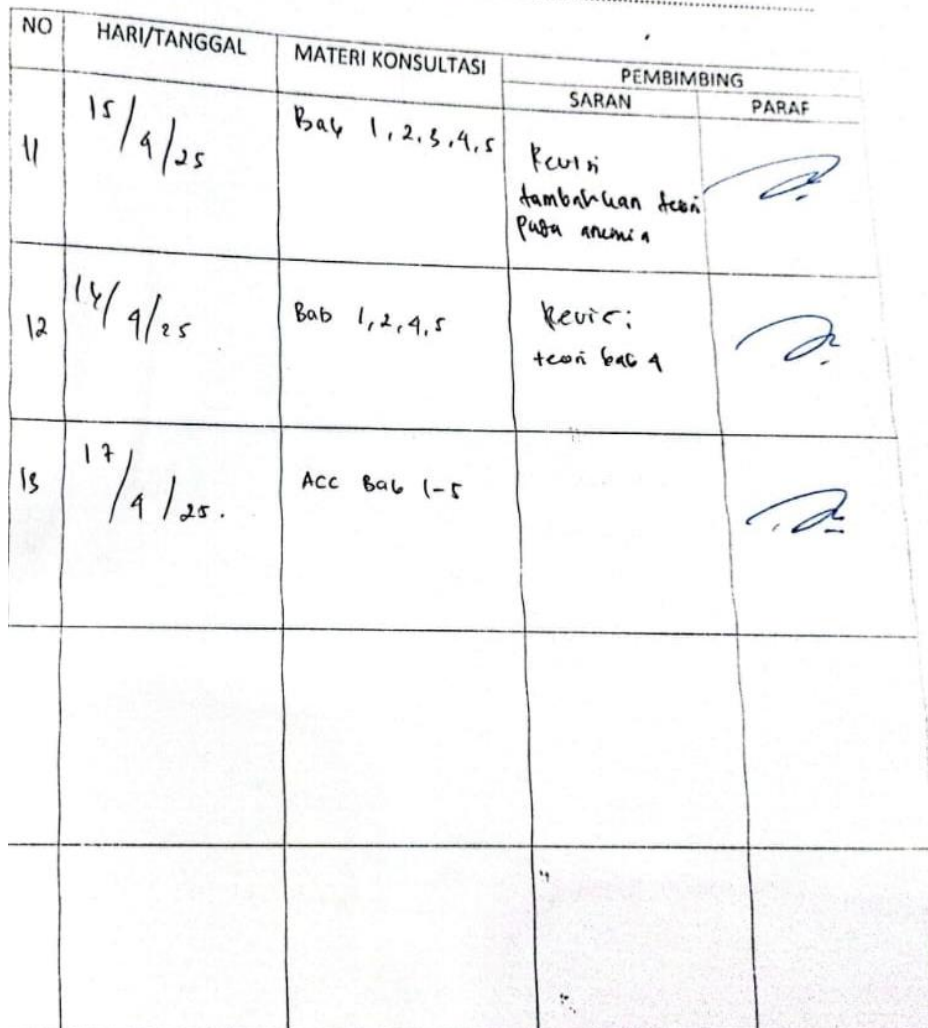 NO HARI/TANGGAL MATERI KONSULTASI PEMBIMBING
SARAN PARAF
11 15/4/25 Bab 1,2,3,4,5 Revisi
tambahkan teori
pada anemia
12 /4/25 Bab 1,2,4,5 Revisi
teori bab 4
13 17/4/25. Acc Bab 1-5